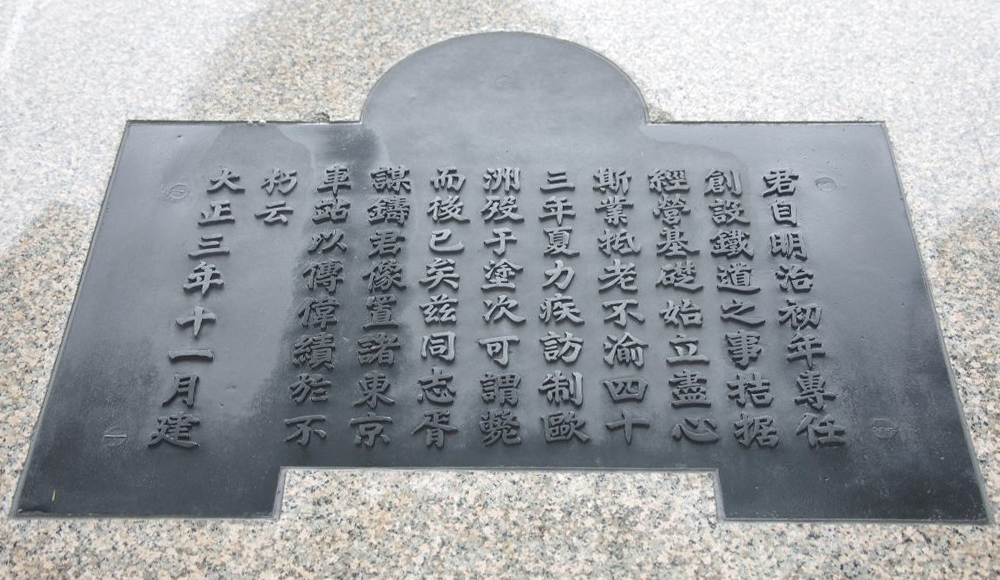 君自明治初年專任
創設鐵道之事拮据
經営基礎始立盡心
斯業抵老不渝四十
三年夏力疾訪制歐
洲歿于塗次可謂斃
而後已矣茲同志胥
謀鑄君像置諸東京
車站以傳偉績於不
朽云
大正三年十一月建